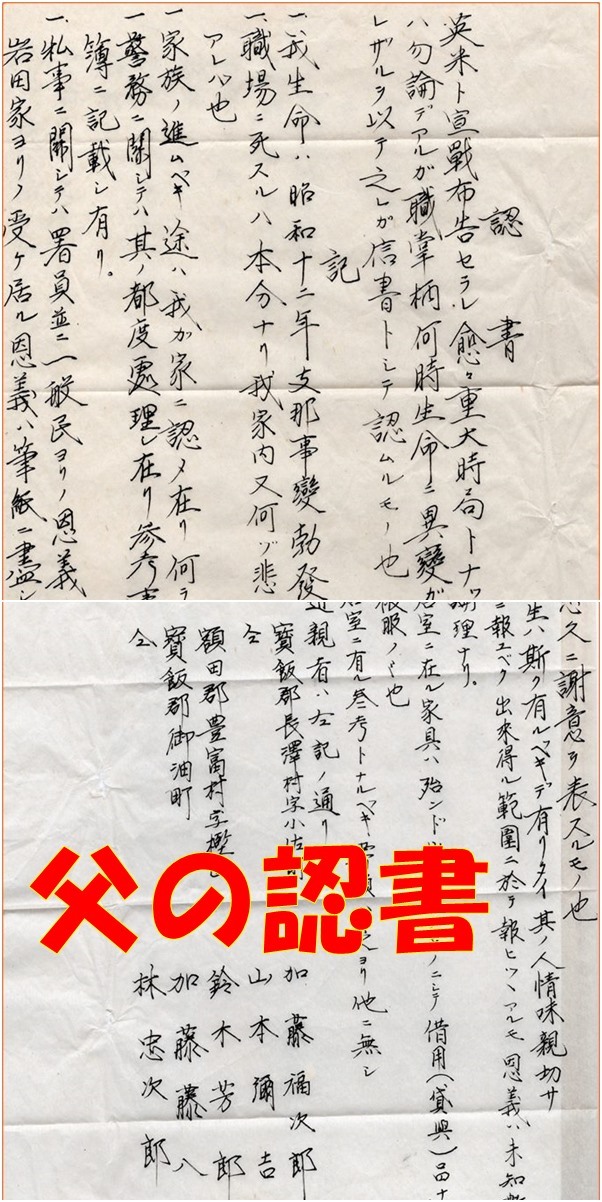 認 書
英米ト宣戰布告セラレ愈々重大時局トナツ
ハ勿論デアルガ職掌柄何時生命ニ異變ガ
レザルヲ以テ之レガ信書トシテ認ムルモノ也
記
一、我生命ハ昭和十二年支那事變勃發
一 職場ニ死スルハ本分ナリ我家内又何ゾ悲
アレバ也
一 家族ノ進ムベキ途ハ我ガ家ニ認メ在リ何ラ
一 警務ニ關シテハ其ノ都度處理シ在リ参考事
簿ニ記載シ有リ。
一、私事ニ關シテハ署員並ニ一般民ヨリノ恩義
岩田家ヨリノ受ケ居ル恩義ハ筆紙ニ盡シ
久ニ謝意ヲ表スルモノ也
生ハ斯ク有ルベキデ有リタイ其ノ人情味親切サ
ニ報ユベク出來得ル範圍ニ於テ報ヒツヽアルモ恩義ハ未知數
理ナリ。
室ニ在ル家具ハ殆ンド ノニシテ借用(貸與)品ナ
服ノミ也
室ニ有ル参考トナルベキ 之ヨリ他ニ無シ
近親者ハ左記ノ通リ
寶飯郡長澤村字小 加藤福次郎
仝 山本彌吉
額田郡豊富村字樫 鈴木芳郎
寶飯郡御油町 加藤藤八
仝 林忠次郎
父の認書